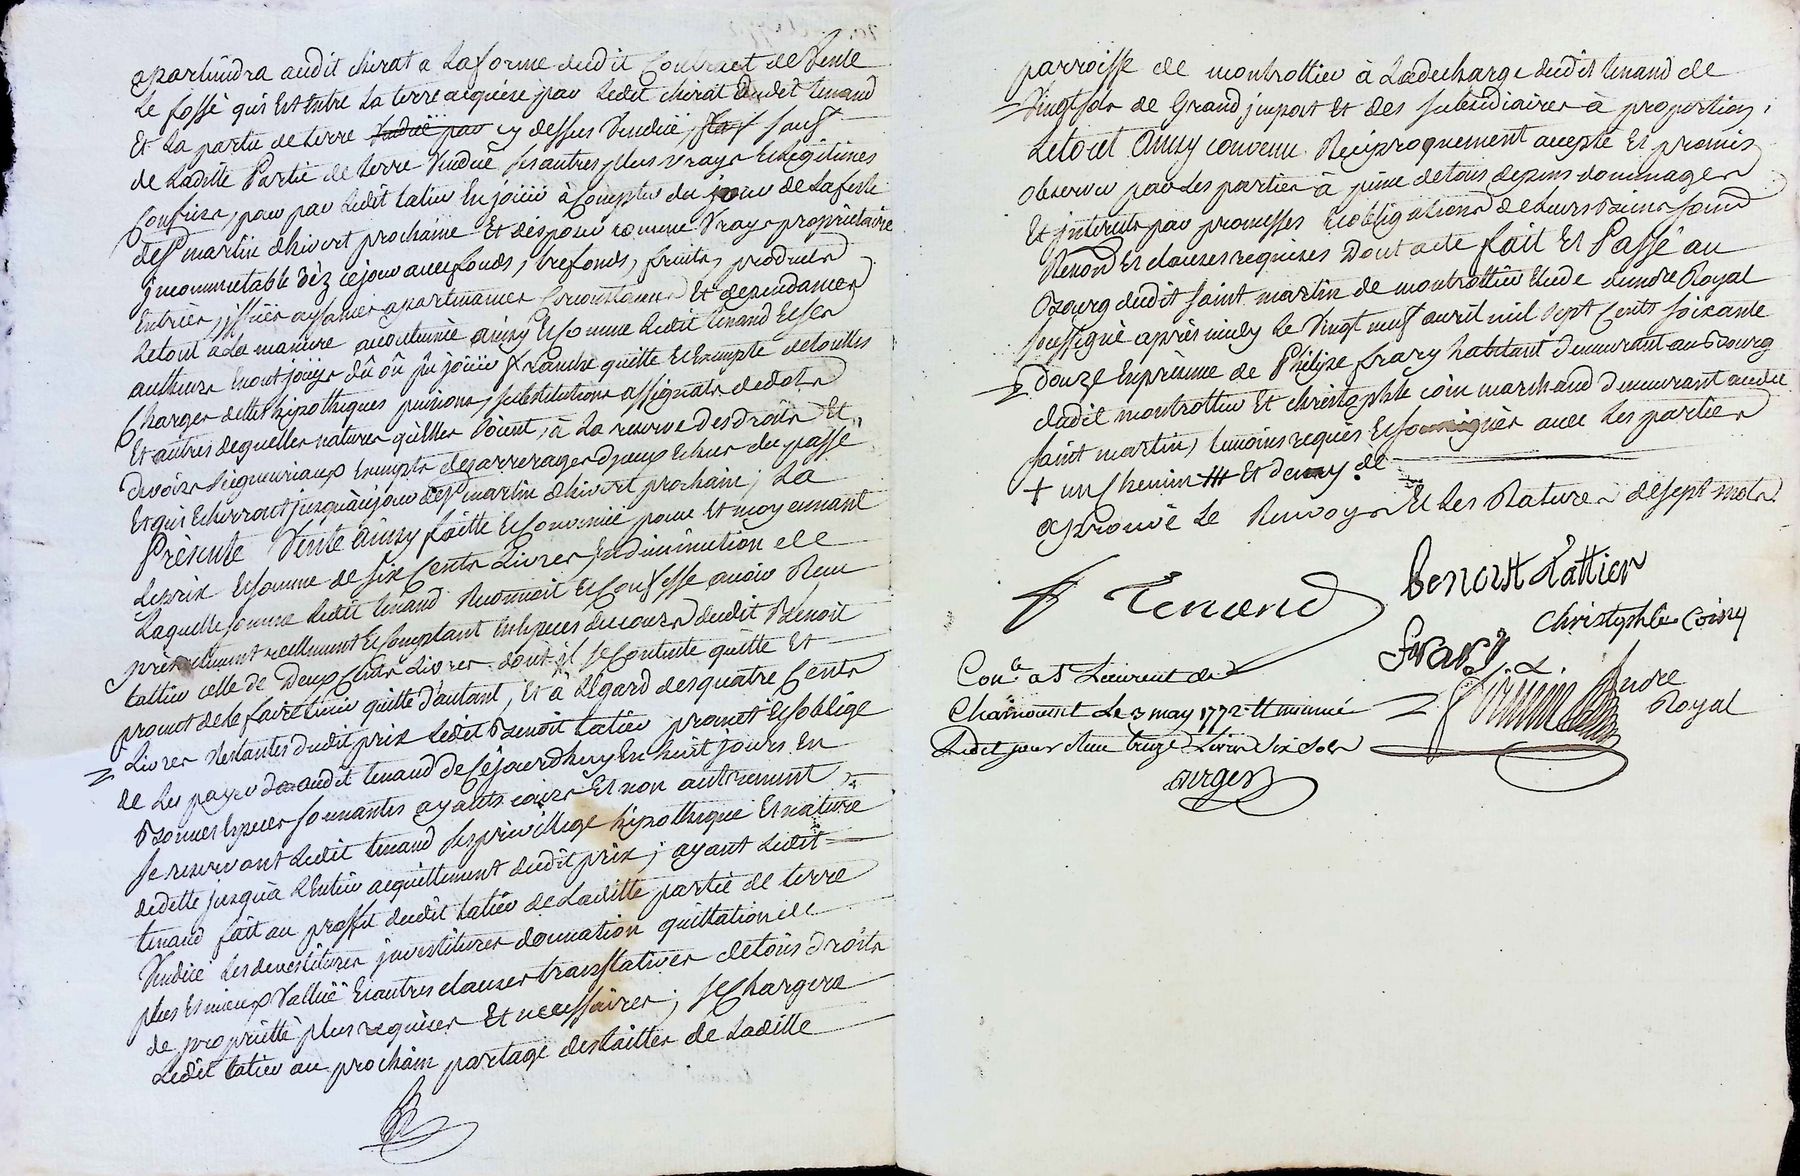 apartiendra audit chirat a la forme dudit Contract de Vente
Le fossé qui Est Entre La terre acquise par Ledit chirat dudit tenand
Et La partie de terre Vendüe par cy dessus Venduë, sauf
de Laditte Partie de terre Venduë ses autres plus vrays et Légitimes
Confins, pour par Ledit tatieu En joüir à Compter du jour de La feste
de St martin d'hivert prochaine Et disposer comme Vray propriétaire
jncommutable dèz ce jour avec fonds, trefonds, fruits, produits
Entrées, jssües aysances apartenances Circonstances Et dependances
Letout a La maniere accoutumée ainsy Et Comme Ledit tenand Et ses
autheurs En ont joüys dû ou pû joüir franche quitte Et Exempte de touttes
Charges dettes hipotheques pensions, substitutions assignats de dots
Et autres de quelles natures qu'elles soient, à La reserve des droits Et
devoirs seigneuriaux Exempts des arrerages d'jceux Echus du passé
Et qui Echerront jusqu'au jour de St martin d'hivert prochain; La
Présente Vente ainsy faitte Et Convenüe pour Et moyennant
Le prix Et somme de six Cents Livres En diminution de
Laquelle somme Ledit tenand Reconnoit Et Confesse avoir Reçu
présentement reellement Et Comptant En Especes de cours dudit Benoit
tatieu celle de Deux Cents Livres dont il se Contente quitte Et
promet de le faire tenir quitte d'autant, Et à L'égard des quatre Cents
Livres Restantes dudit prix Ledit Benoit tatieu promet Et s'oblige
de Les payer audit tenand de Cejourdhuy En huit jours En
Bonnes Especes sonnantes ayants cours Et non autrement
se reservant Ledit tenand ses privillege hipotheque Et nature
de dette jusqu'a L'Entier acquittement dudit prix; ayant Ledit
tenand fait au proffit dudit tatieu de Laditte partie de terre
Venduë Les devestitures jnvestitures donnation quittation de
plus Et mieux Vallüe Et autres clauses translatives de tous droits
de proprietté plus requises Et necessaires; se Chargera
Ledit tatieu au prochain partage des tailles de Laditte
parroisse de montrottier à La decharge dudit tenand de
Vingt sols de Grand jmpost Et des subsidiaires à proportion,
Letout Ainsy convenu Reciproquement accepté Et promis
observer par Les parties à peine de tous depens dommages
Et jnterests par promesses Et obligations de Leurs Biens soumis
Renond Et clauses requises Dont acte fait Et Passé au
Bourg dudit saint martin de montrottier Etude du nore Royal
soussigné après midy Le Vingt neuf avril mil sept Cents soixante
douze En présence de Philipe frary habitant demeurant au Bourg
dudit montrottier Et christophle coin marchand demeurant audit
saint martin, temoins requis Et soussignés avec Les parties
+ un Chemin Et demy de
aprouvé Le Renvoy Et Les Ratures de sept mots.
F Tenand
Benoist Lattier
Christophle Coing
frary
nore
Royal
Con.le a St Laurent de
Chamousset Le 3 may 1772
Ledit jour Reçu treize Livres Six sols